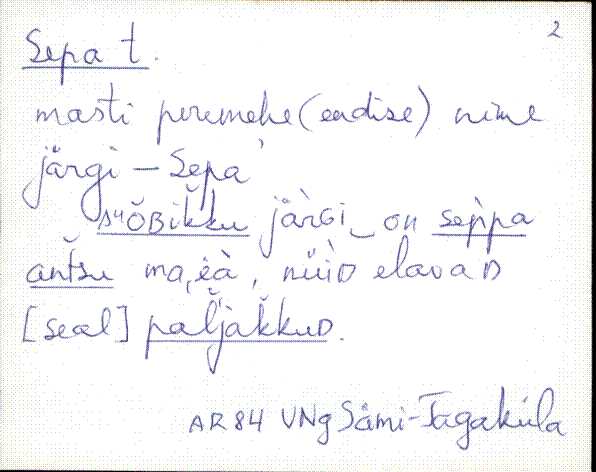 2
Sepa t.
masti peremehe (endise) nime
järgi – Sepa
järGi on sep̀pa
ma, nüìD elavaD
[seal] pal̆jak̆kuD.
AR84 VNg Sämi-Tagaküla